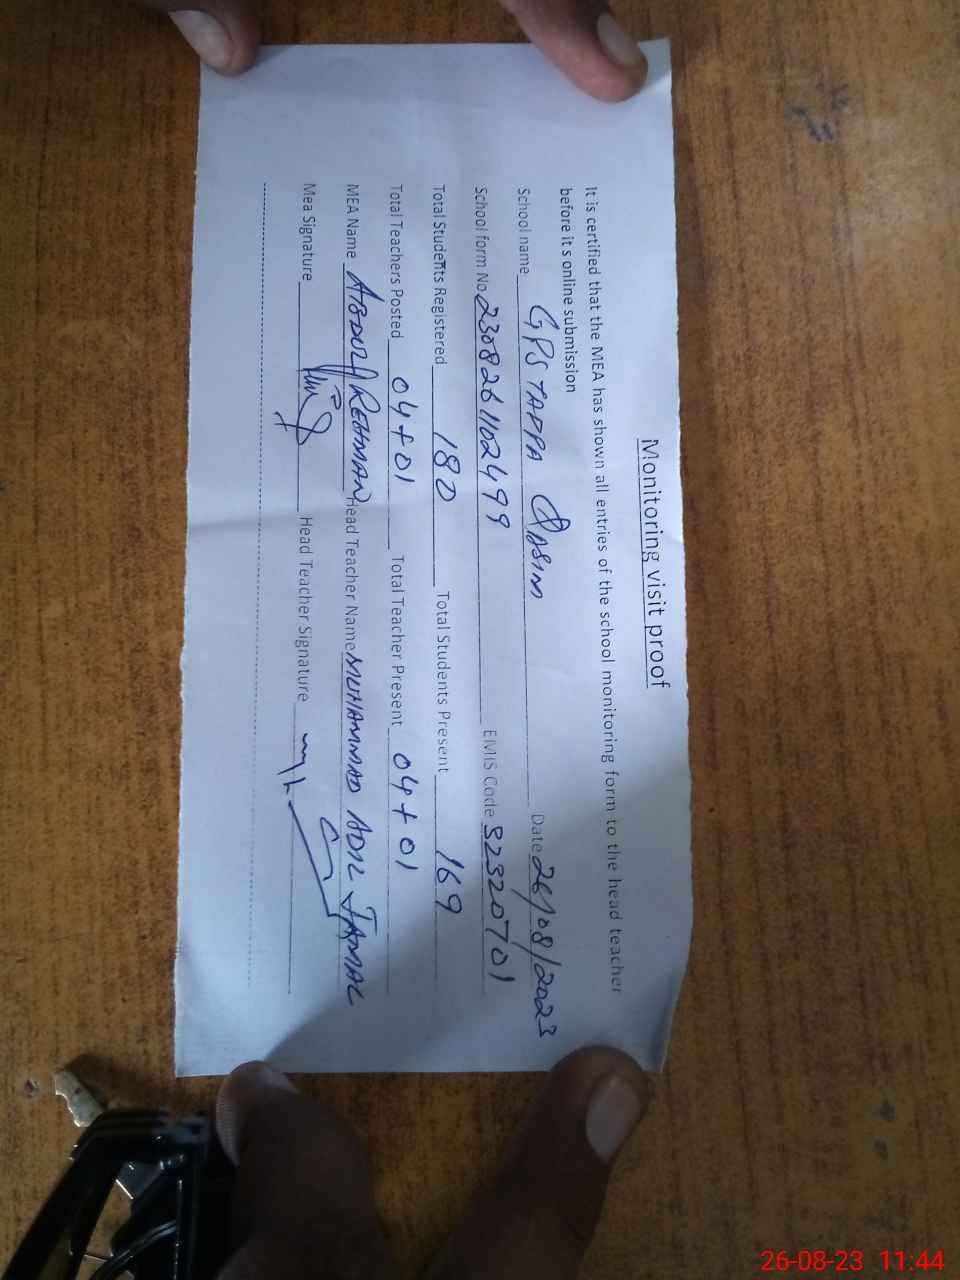 Monitoring visit proof
It is certified that the MEA has shown all entries of the school monitoring form to the head teacher
before it s online submission
School name GPS TAPPA QASIM Date 26/08/2023
School form No 2308261102499 EMIS Code 32320701
Total Students Registered 180 Total Students Present 169
Total Teachers Posted 04+01 Total Teacher Present 04+01
MEA Name ABDUL REHMAN Head Teacher Name MUHAMMAD ADIL JAMAL
Mea Signature Head Teacher Signature
26-08-23 11:44